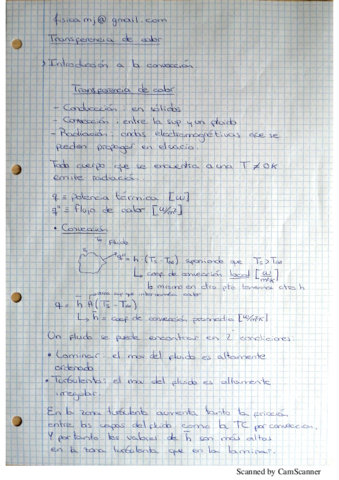 fisica.mj@gmail.com
Transferencia de calor
) Introducción a la convección
Transferencia de calor
- Conducción: en sólidos
- Convección: entre la sup y un fluido
- Radiación: ondas electromagnéticas que se
pueden propagar en el vacío.
Todo cuerpo que se encuentra a una T ≠ 0K
emite radiación.
q ≡ potencia térmica [W]
q" ≡ flujo de calor [W/m²]
• Convección
T∞ Fluido
q" = h (Ts - T∞) suponiendo que Ts > T∞
L coef de convección local [W/m²K]
la misma en otro pto tenemos otro h
q = h̄ A (Ts - T∞)
L h̄ = coef de convección promedio [W/m²K]
Un fluido se puede encontrar en 2 condiciones:
• Laminar: el mov del fluido es altamente
ordenado
• Turbulento: el mov del fluido es altamente
irregular.
En la zona turbulenta aumenta tanto la fricción
entre las capas del fluido como la TC por convección.
Y por tanto los valores de h̄ son más altos
en la zona turbulenta que en la laminar.
Scanned by CamScanner